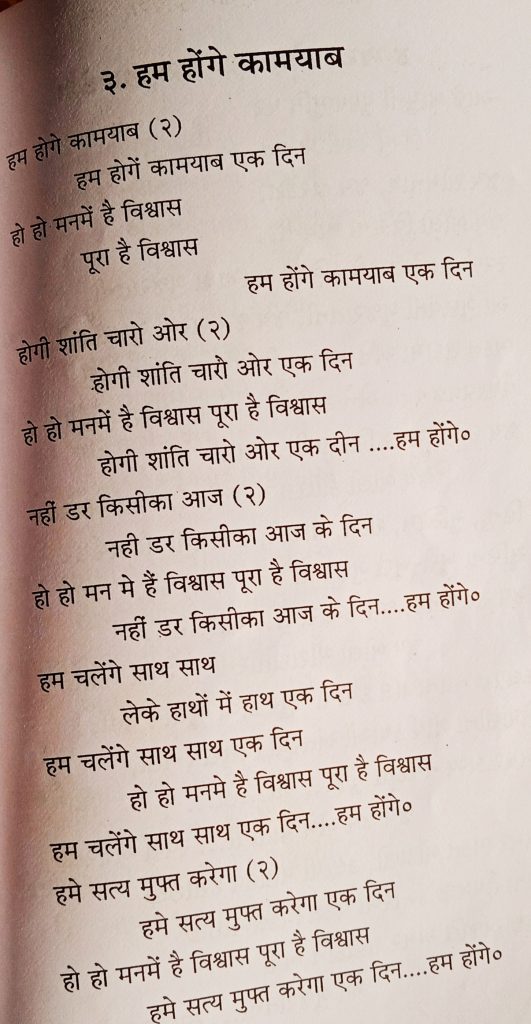 ३. हम होंगे कामयाब
हम होगे कामयाब (२)
हम होगें कामयाब एक दिन
हो हो मनमें है विश्वास
पूरा है विश्वास
हम होंगे कामयाब एक दिन
होगी शांति चारो ओर (२)
होगी शांति चारो ओर एक दिन
हो हो मनमें है विश्वास पूरा है विश्वास
होगी शांति चारो ओर एक दीन ....हम होंगे०
नहीं डर किसीका आज (२)
नही डर किसीका आज के दिन
हो हो मन मे हैं विश्वास पूरा है विश्वास
नहीं ड़र किसीका आज के दिन....हम होंगे०
हम चलेंगे साथ साथ
लेके हाथों में हाथ एक दिन
हम चलेंगे साथ साथ एक दिन
हो हो मनमे है विश्वास पूरा है विश्वास
हम चलेंगे साथ साथ एक दिन....हम होंगे०
हमे सत्य मुफ्त करेगा (२)
हमे सत्य मुफ्त करेगा एक दिन
हो हो मनमें है विश्वास पूरा है विश्वास
हमे सत्य मुफ्त करेगा एक दिन....हम होंगे०